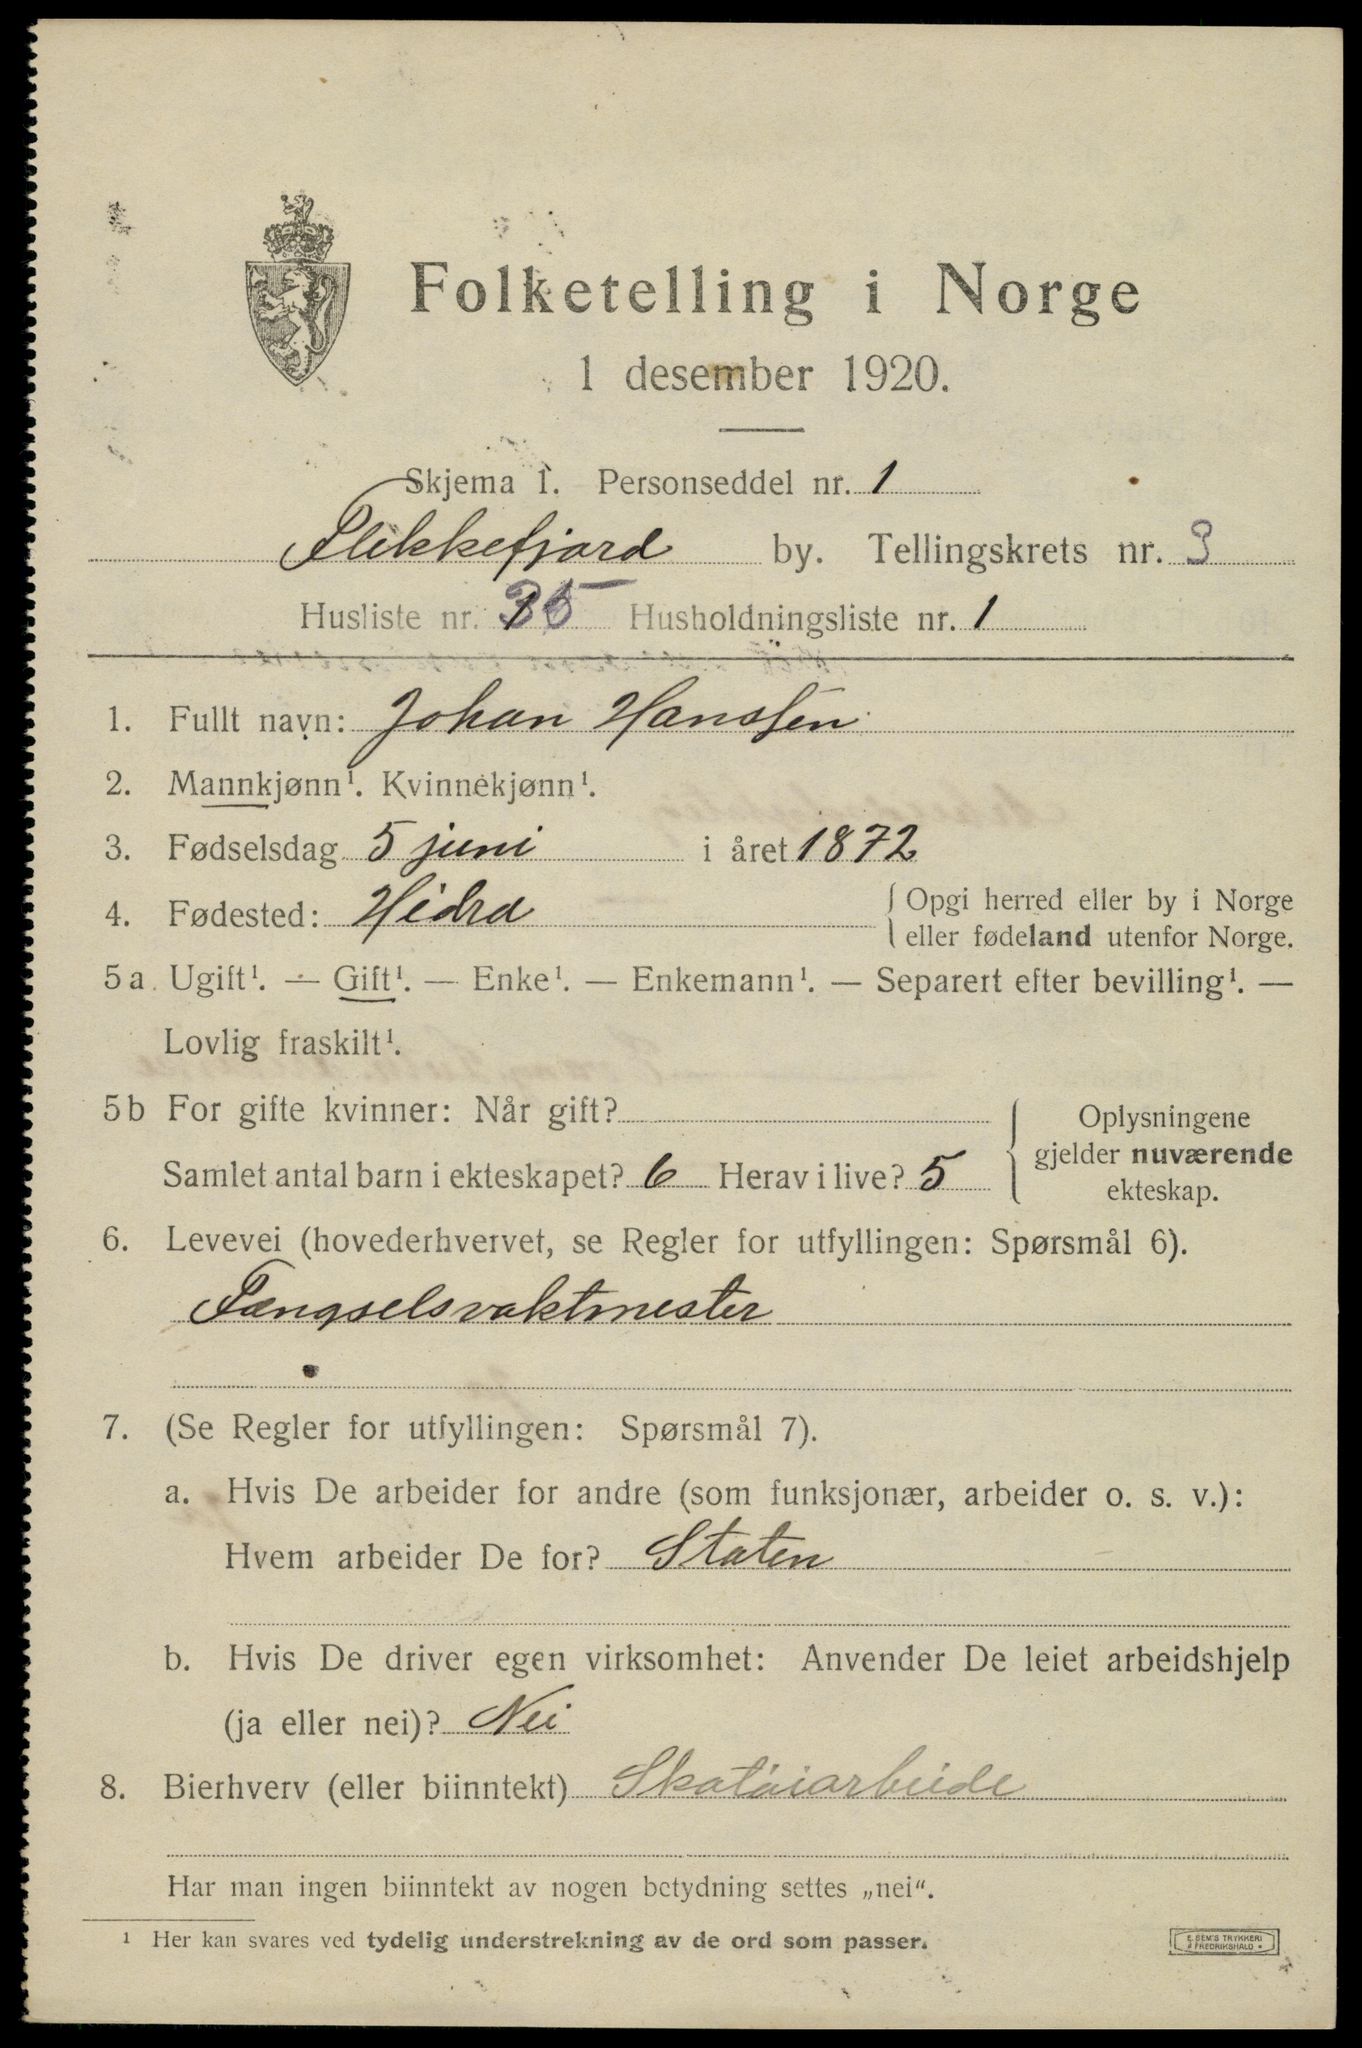 Folketelling i Norge
1 desember 1920.
Skjema 1. Personseddel nr. 1
Flekkefjord by. Tellingskrets nr. 3
Husliste nr. 35 Husholdningsliste nr. 1
1. Fullt navn: Johan Hanssen
2. Mannkjønn¹. Kvinnekjønn¹.
3. Fødselsdag 5 juni i året 1872
4. Fødested: Hidra { Opgi herred eller by i Norge
eller fødeland utenfor Norge.
5a Ugift¹. — Gift¹. — Enke¹. — Enkemann¹. — Separert efter bevilling¹. —
Lovlig fraskilt¹.
5b For gifte kvinner: Når gift?
Samlet antal barn i ekteskapet? 6 Herav i live? 5
{ Oplysningene
gjelder nuværende
ekteskap.
6. Levevei (hovederhvervet, se Regler for utfyllingen: Spørsmål 6).
Fængselsvaktmester
7. (Se Regler for utfyllingen: Spørsmål 7).
a. Hvis De arbeider for andre (som funksjonær, arbeider o. s. v.):
Hvem arbeider De for? Staten
b. Hvis De driver egen virksomhet: Anvender De leiet arbeidshjelp
(ja eller nei)? Nei
8. Bierhverv (eller biinntekt) Skotöiarbeide
Har man ingen biinntekt av nogen betydning settes „nei“.
¹ Her kan svares ved tydelig understrekning av de ord som passer.
E. SEM'S TRYKKERI
FREDRIKSHALD